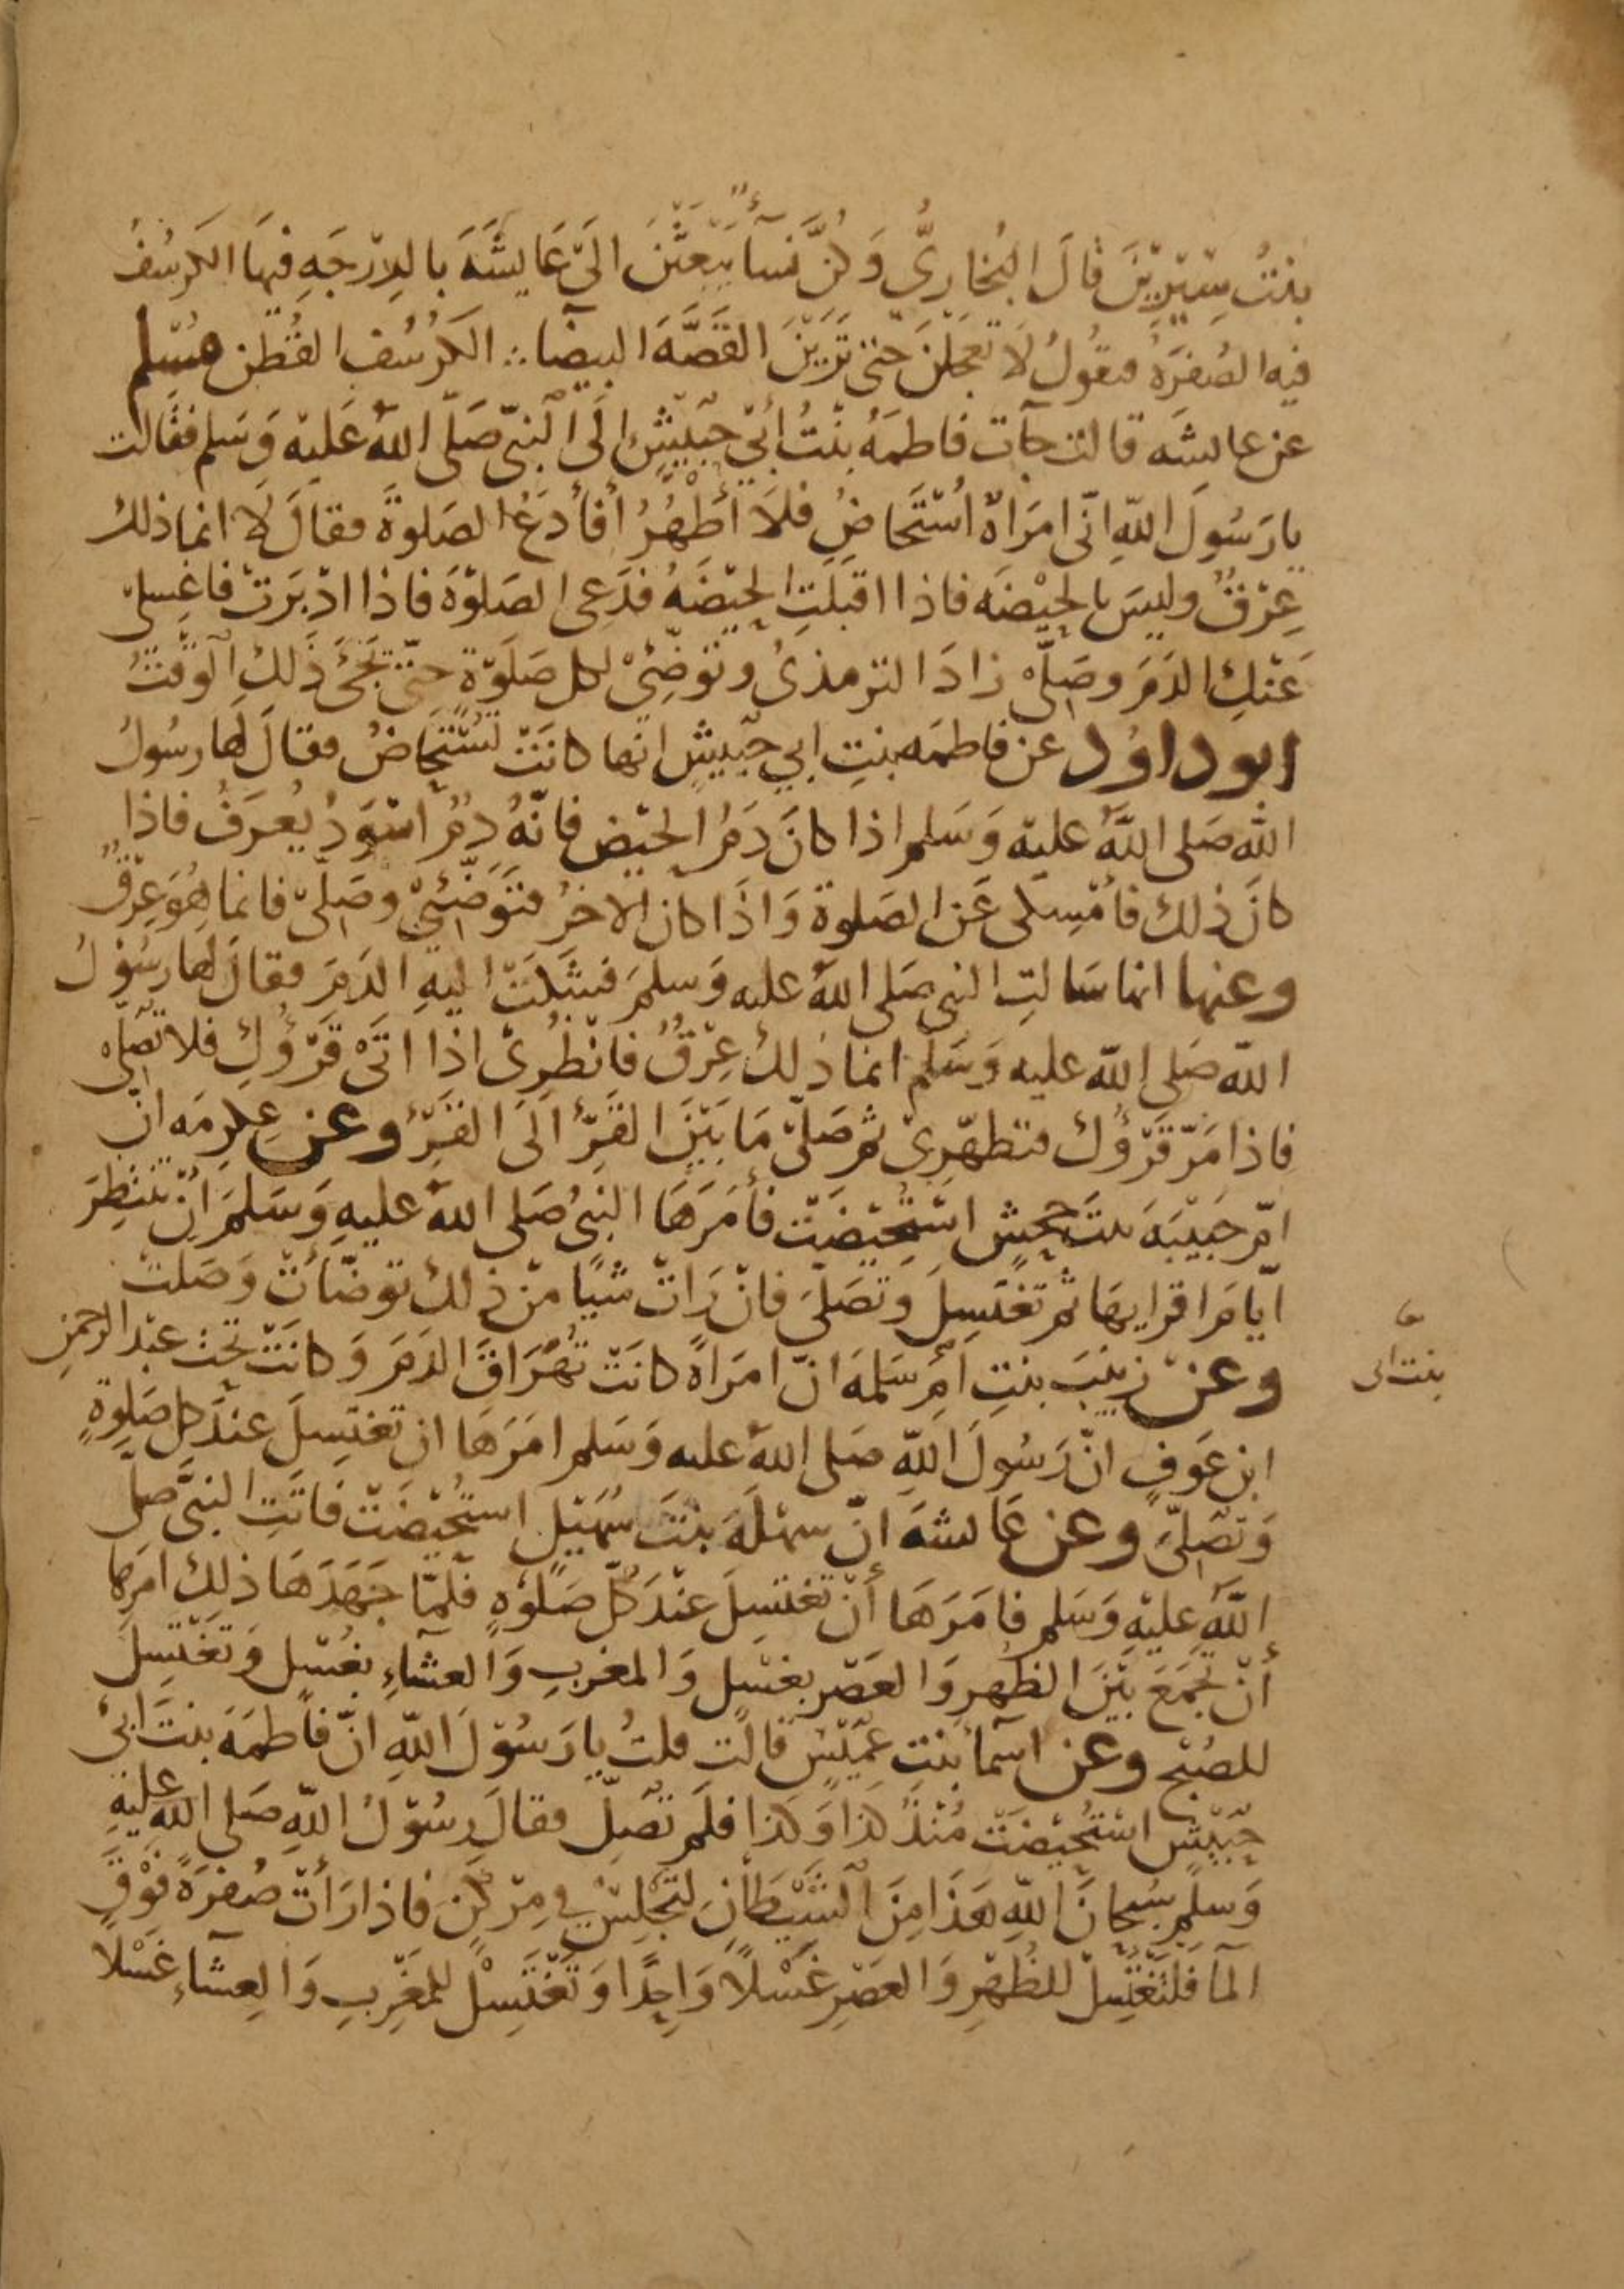 بِنْتُ سِيْرِيْنَ قَالَ البُخَارِيُّ وَكُنَّ نِسَآءٌ يَبْعَثْنَ الَى عَايِشَةَ بالدِرْجَةِ فيهَا الكَرسُفُ
فيه الصُفرَةُ فتقُولُ لَا تَعْجَلْنَ حَتى تَرَيْنَ القَصَّةَ البيضآ ؞ الكَرُسُف القُطن مُسْلم
عن عايشَه قالت جآت فاطمَهُ بنْتُ أَبي حُبَيْشٍ إلَى النَّبيّ صَلَّى اللهُ عَلَيْه وَسَلم فقَالت
يا رَسُولَ اللهِ انّى امرَاةٌ اُسْتَحَاضُ فلَا أَطْهُرُ أفأدَعُ الصَلوةَ فقالَ لَا انما ذلك
عِرْقٌ وليسَ بالحَيْضَه فاذا اقبَلَتِ الحَيْضَهُ فدَعى الصَلوْةَ فاذا ادْبَرَتْ فاغسِلى
عَنْكِ الدَمَ وصَلّى زادَ الترمذىُ وتوَضّئى لكل صَلَوْةٍ حتّى يَجْئَ ذَلكِ الوَقْتُ
ابو داوُد عن فاطمَه بنتِ ابي حُبَيشٍ انها كانَتْ تُسْتَحَاضُ فقالَ لَهَا رسُولُ
الله صَلى اللهُ عليْه وَسَلم اذا كانَ دَمُ الحَيْض فانّهُ دَمٌ اسْوَدُ يُعرَفُ فاذا
كانَ ذلك فأمْسِكى عَن الصَلوة وَاذَا كان الاخرُ فتَوَضّئي وصَلّى فانما هُوَ عِرْقٌ
وعنها انها سَالتِ النبى صَلى اللهُ عليه وَسلمَ فشَكَتْ اليْهِ الدَمَ فقالَ لها رسُوْلُ
الله صَلى الله عليه وَسَلم انما ذلك عِرْقٌ فانْظُرِىْ اذا اتَى قَرْؤُكِ فلا تصَلّى
فاذا مَرّ قَرْؤُك فتطهّرِىْ ثم صَلّى مَا بَيْنَ القَرْأ الَى القَرْأ وعن عِكرِمَه انّ
امّ حَبيْبَهَ بنتَ جحشٍ اسْتُحِيْضَتْ فأمَرَهَا النبىُ صَلى اللهُ عليهِ وَسَلمَ أنْ تنتظِرَ
ايّامَ اقرايهَا ثم تغتَسِلَ وَتصَلّىَ فانْ رَاتْ شيًا منْ ذلك توضّأتْ وَصَلت
وعنْ زينبَ بنتِ أمّ سَلمهَ انّ امرَاةً كانَتْ تُهَرَاقُ الدَمَ وَكانَتْ تحتَ عبْد الرحمن
ابن عَوفٍ انّ رَسُولَ اللهِ صَلى اللهُ عليه وَسَلم امَرَهَا ان تغتسِلَ عندَ كل صَلوةٍ
وَتصَلّىَ وعن عَايشهَ انّ سهْلَهَ بنْتَ سُهَيْل اسْتُحيْضَتْ فاتَتِ النبىَّ صلى
اللهُ عليْهِ وَسَلم فامَرَهَا أنْ تغتسِلَ عنْدَ كلّ صَلوْةٍ فلَمّا جَهَدَهَا ذلِك امَرها
أنْ تجمَعَ بَيْنَ الظهرِ وَالعَصْر بغسْلٍ وَالمغربِ وَالعشآءِ بغُسْلٍ وَتغتَسِلَ
للصُبْح وعن اسمآ بنتِ عُمَيْسٍ قالت قلتُ يا رَسُوْلَ اللهِ انّ فاطمَةَ بنتَ ابىْ
حُبَيْش اسْتُحيْضَتْ مُنْذُ كذا وَكذا فلَم تصَلّ فقالَ رسُوْلُ اللهِ صَلى اللهُ عليْهِ
وَسلم سُبحانَ اللهِ هَذَا مِنَ الشَّيْطَانِ لتَجْلِسْ في مِرْكَنٍ فاذا رَأتْ صُفرَةً فَوْقَ
المآ فَلتَغْتَسِلْ للظُهْرِ وَالعَصْرِ غسْلًا وَاحِدًا وَتَغْتَسِلْ للمَغْرِبِ وَالعِشآءِ غَسْلًا
بنت ابى